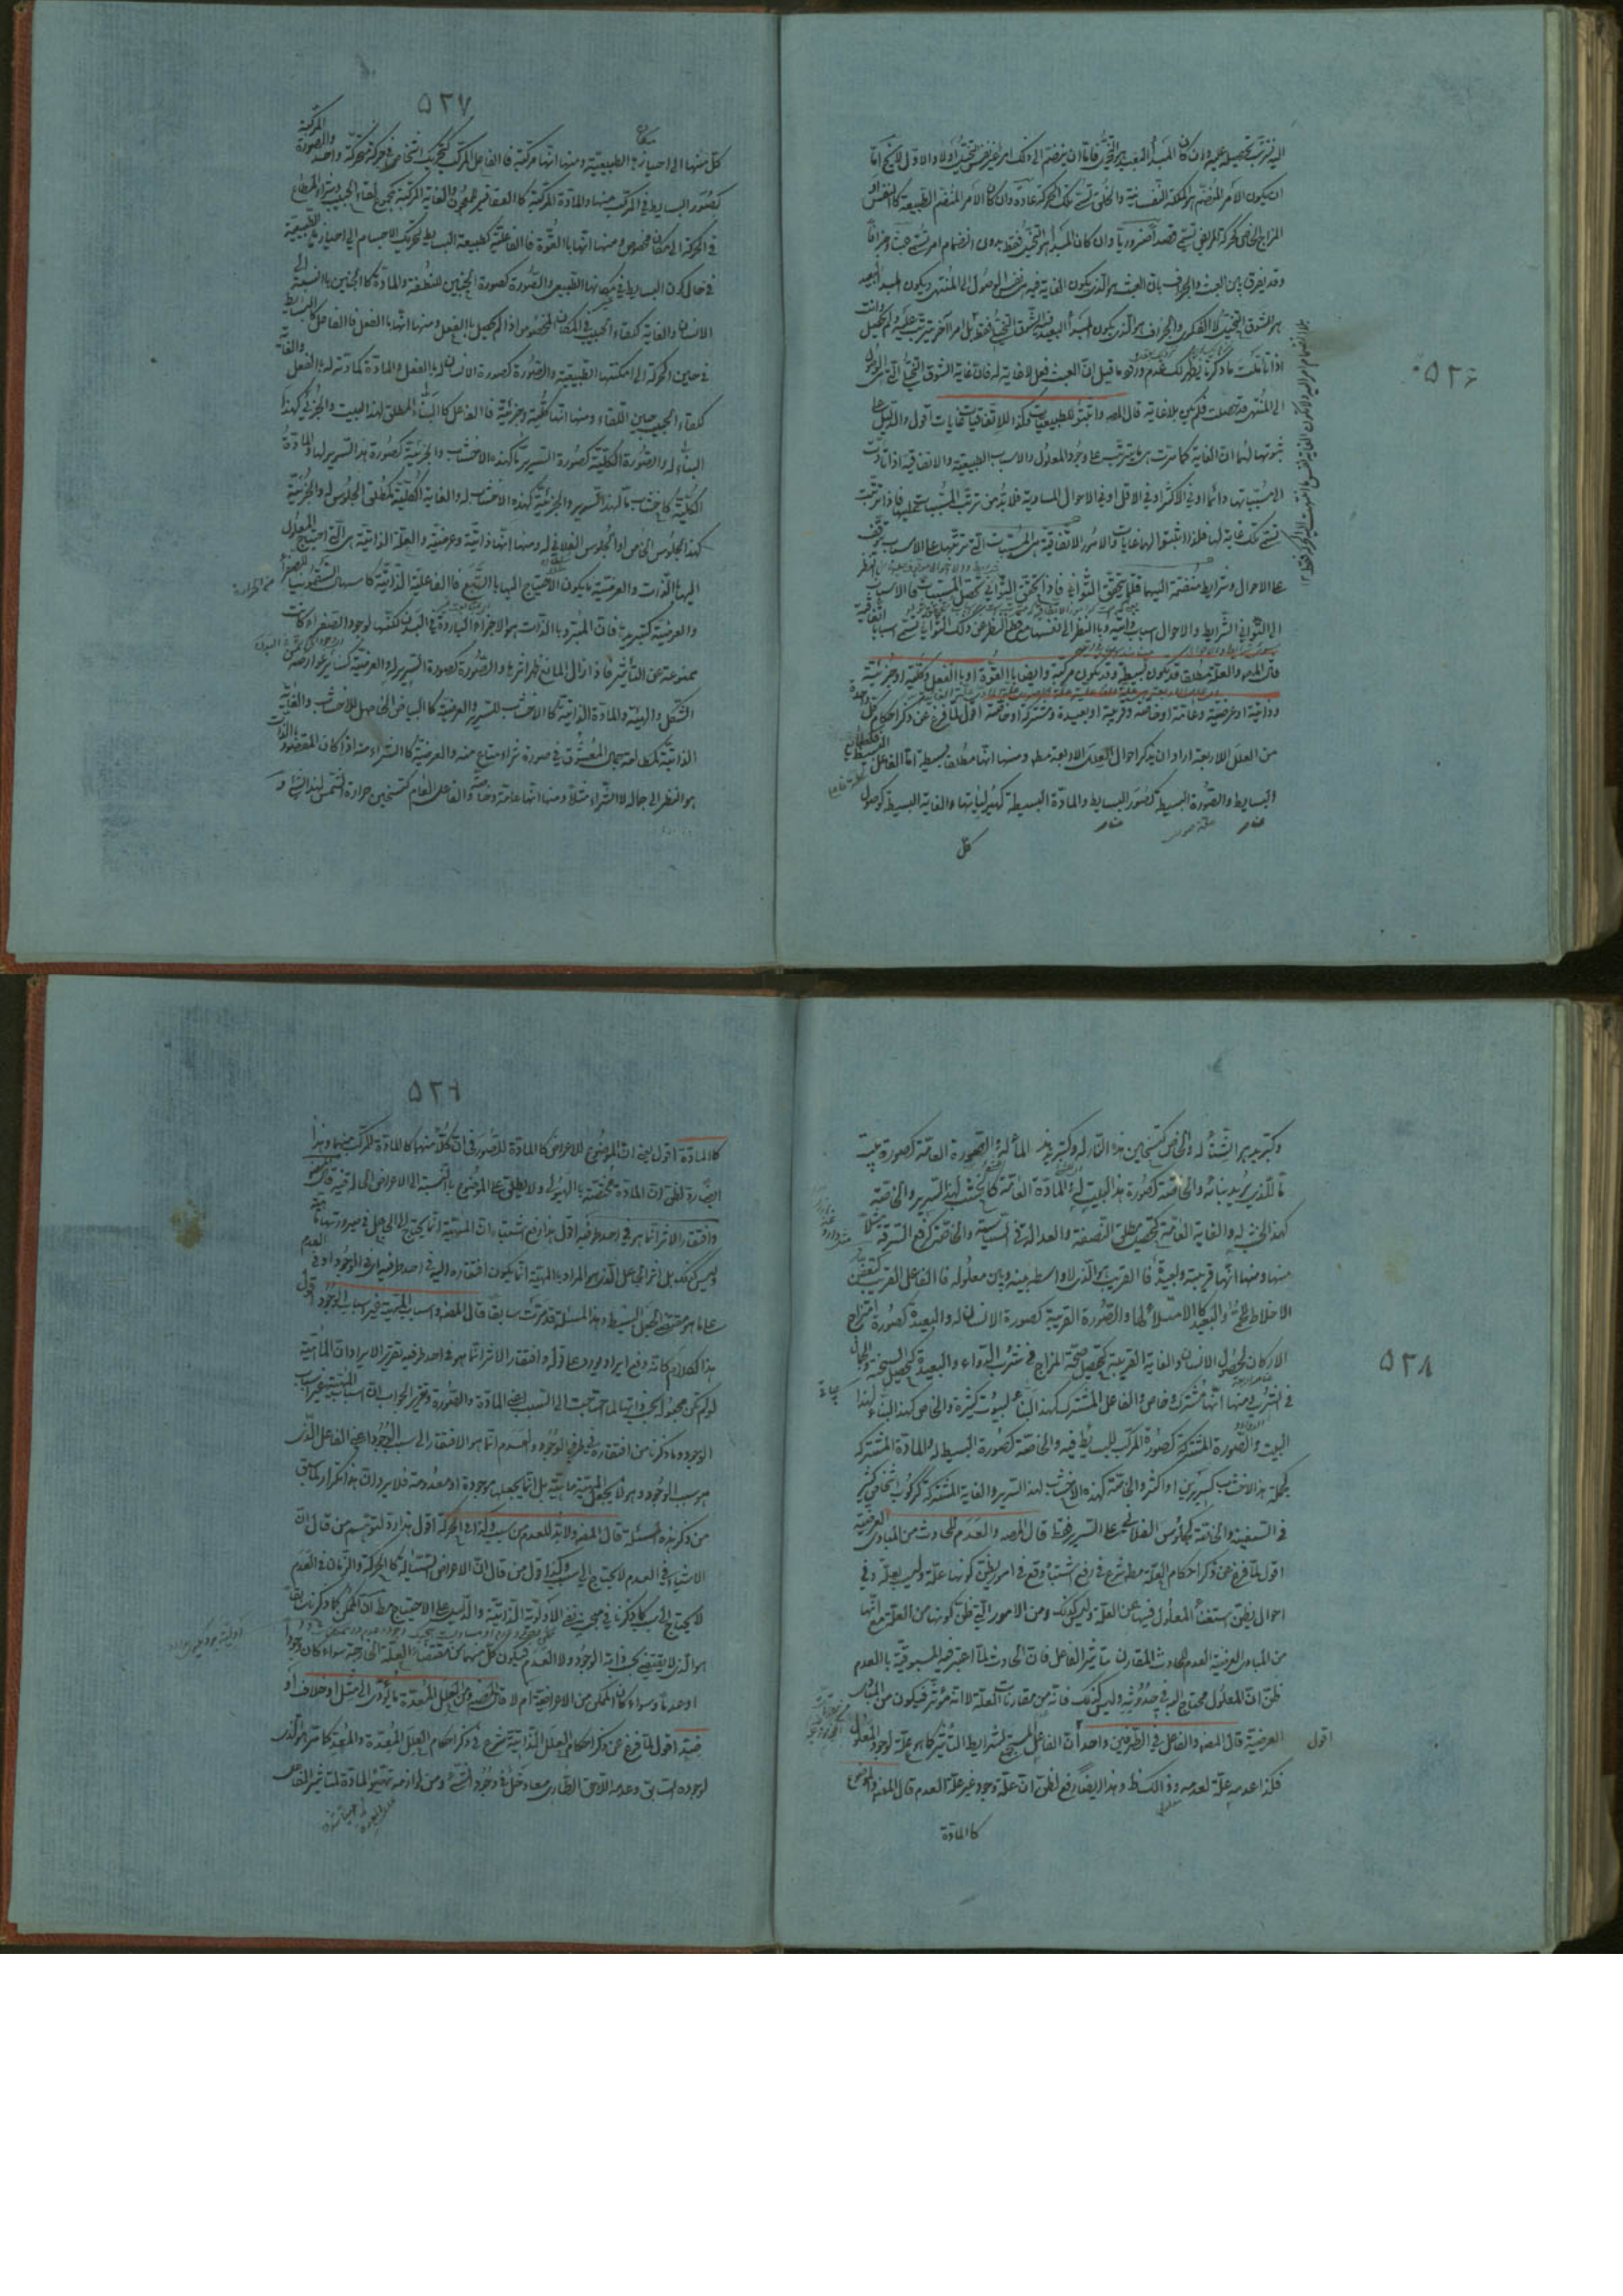 ٥٢٦
اليه فيترتب تحصيله عليه وان كان المبدأ البعيد هو التخيل فاما ان ينضم الى ذلك امر غير نفس التخيل أو لا والاول لا يخ اما
ان يكون الامر المنضم هو الملكة النفسانية والخلق تسمى تلك الحركة عادة وان كان الامر المنضم الطبيعة كالتنفس او
المزاج الخاص كحركة المريض تسمى قصدا ضروريا وان كان المبدأ هو التخيل فقط بدون انضمام امر تسمى عبثا وجزافا
وقد يفرق بين العبث والجزاف بان العبث هو الذى يكون الغاية فيه نفس الوصول الى المنتهى ويكون المبدأ البعيد
هو الشوق التخيلى لا الفكرى والجزاف هو الذى يكون المبدأ البعيد فيه الشوق التخيلى فقط بل امرا آخر يترتب عليه ولم يحصل وانت
اذا تأملت ما ذكرنا يظهر لك عدم ورود ما قيل ان العبث فعل لا غاية له فان غاية الشوق التخيلى الى نفس الوصول
الى المنتهى قد حصلت فلم يكن بلا غاية قال المص واثبتوا للطبيعيات وكذا للاتفاقيات غايات اقول والدليل على
ثبوتها لهما ان الغاية كما مرت هى ما يترتب على وجود المعلول والاسباب الطبيعية والاتفاقية اذا تأدت
الى مسبباتها دائما او فى الاكثر او فى الاقل او فى الاحوال المساوية فلا بد من ترتب المسببات عليها فاذا ترتبت
تسمى تلك غاية لها فلذا اثبتوا لهما غايات والامور الاتفاقية هى المسببات التى ترتبها على الاسباب يتوقف
على الاحوال وشرايط منضمة اليها قلما يتحقق الثوانى فاذا يتحقق الثوانى تحصل المسببات فالاسباب بالنظر
الى الثوانى الشرايط والاحوال اسباب ذاتية وبالنظر الى انفسها مع قطع النظر عن ذلك الثوانى تسمى اسبابا اتفاقية
قال المص والعلة مطلقا قد تكون بسيطة وقد يكون مركبة وايضا بالقوة او بالفعل وكلية او جزئية
وذاتية او عرضية وعامة او خاصة وقريبة او بعيدة ومشتركة او خاصة اقول لما فرغ عن ذكر احكام كل واحدة
من العلل الاربعة اراد ان يذكر احوال العلل الاربعة مطلقا ومنها انها مطلقا بسيطة اما الفاعل البسيط فكطبائع
البسايط والصورة البسيطة كصور البسايط والمادة البسيطة كهيولياتها والغاية البسيطة كوصول
كل
٥٢٧
كل منها الى احيازها الطبيعية ومنها انها مركبة فالفاعل المركب كتحريك اشخاص فى حركة متحركة واحد والصورة المركبة
كصور البسايط فى المركب منها والمادة المركبة كالعقاقير للمعجون والغاية المركبة كمجموع لقاء الحبيب وشراء المتاع
فى الحركة الى مكان مخصوص ومنها انها بالقوة فالفاعلية كطبيعة البسايط لتحريك الاجسام الى احيازها الطبيعية
فى حال كون البسايط فى مكانها الطبيعى والصورة كصورة الجنين للنطفة والمادة كالجنين بالنسبة الى
الانسان والغاية كلقاء الحبيب فى المكان المخصوص اذا لم يحصل بالفعل ومنها انها بالفعل فالفاعل كالبسايط
فى حين الحركة الى امكنتها الطبيعية والصورة كصورة الانسان له بالفعل والمادة كمادته له بالفعل والغاية
كلقاء الحبيب حين اللقاء ومنها انها كلية وجزئية فالفاعل كالبناء المطلق لهذا البيت والجزئى كهذا
البناء له والصورة الكلية كصورة السرير ما لهذه الاخشاب والجزئية كصورة هذا السرير لها والمادة
الكلية كاخشاب ما لهذا السرير والجزئية كهذه الاخشاب له والغاية الكلية كمطلق الجلوس له والجزئية
كهذا الجلوس الخاص او الجلوس الفلانى له ومنها انها ذاتية وعرضية والعلة الذاتية هى التى احتياج المعلول
اليها بالذات والعرضية ما يكون الاحتياج اليها بالتبع فالفاعلية الذاتية كاسهال السقمونيا للصفراء
والعرضية كتبريدها فان المبرد بالذات هو الاجزاء الباردة فى البدن لكنها لوجود الصفراء كانت
ممنوعة عن التأثير فاذا زال المانع ظهر اثرها والصورة كصورة السرير له والعرضية كساير عوارضه من
الشكل والهيئة والمادة الذاتية كالاخشاب للسرير والعرضية كالبياض الحاصل للاخشاب والغاية
الذاتية كمطالعة جمال المعشوق فى صورة شراء متاع منه والعرضية كالشراء منه اذا كان المقصود بالذات
هو النظر الى جماله لا الشراء مثلا ومنها انها عامة وخاصة والفاعل العام كتسخين حرارة الشمس لهذا الشئ و
٥٢٨
وكتبريد هو الشتاء له والخاص كتسخين هذه النار له وكتبريد هذا الماء له والصورة العامة كصورة بيت
ما للذى يريد بنائه والخاصة كصورة هذا البيت له والمادة العامة كالخشب لهذا السرير والخاصة
كهذا الخشب له والغاية العامة كتحصيل مطلق النصفة والعدالة فى السياسة والخاصة كرفع السرقة مثلا
منها ومنها انها قريبة وبعيدة فالقريب هو الذى لا واسطة بينه وبين معلوله فالفاعل القريب كتعفن
الاخلاط للحمى والبعيد كالامتلاء لها والصورة القريبة كصورة الانسان له والبعيدة كصورة امتزاج
الاركان لحصول الانسان والغاية القريبة كتحصيل صحة المزاج فى شرب الدواء والبعيدة كتحصيل السخنة والجمال
فى الشرب ومنها انها مشترك وخاص والفاعل المشترك كهذا البناء لبيوت كثيرة والخاص كهذا البناء لهذا
البيت والصورة المشتركة كصورة المركب للبسايط فيه والخاصة كصورة البسيط له والمادة المشتركة
كجملة هذا الاخشاب لسريرين او اكثر والخاصة كهذه الاخشاب لهذا السرير والغاية المشتركة كركوب اشخاص كثير
فى السفينة والخاصة كجلوس الفلانى على السرير فقط قال المص والعدم للحادث من المبادى العرضية
اقول لما فرغ عن ذكر احكام العلة مطلقا شرع فى رفع اشتباه وقع فى امور يظن كونها علة وليس بعلة وفى
احوال يظن استغناء المعلول فيها عن العلة وليس كذلك ومن الامور التى ظن كونها من العلة مع انها
من المبادى العرضية العدم للحادث المقارن بتأثير الفاعل فان الحادث لما اعتبر فيه المسبوقية بالعدم
ظن ان المعلول محتاج اليه فى حدوثه وليس كذلك فانه من مقارنات العلة لا انه مؤثر فيكون من المبادى
العرضية قال المص والفاعل فى الطرفين واحد ان الفاعل المستجمع لشرايط التأثير كما هو علة لوجود المعلول
اقول
فكذا عدمه علة لعدمه وهذا ايضا رفع لظن ان علة وجوده غير علة العدم قال المص والموضوع
كالمادة
٥٢٩
كالمادة اقول يعنى ان الموضوع للاعراض كالمادة للصور فى ان كلا منهما كالمادة للمركب منهما وهذا
ايضا رد لظن ان المادة مختصة بالهيولى ولا يطلق على الموضوع بالنسبة الى الاعراض الحالة فيه قال المص
وافتقار الاثر انما هو فى احد طرفيه اقول هذا رفع اشتباه ان المهية انما يحتاج الى الجاعل فى صيرورتها مهية
وليس كذلك بل اثر الجاعل الذى هو المراد بالمهية انما يكون افتقاره اليه فى احد طرفيه اى فى الوجود او فى العدم
على ما هو مقتضى الجعل البسيط وهذا المسئلة قد مرت سابقا قال المص واسباب المهية غير اسباب الوجود اقول
هذا الكلام كانه دفع ايراد يورد على قوله وافتقار الاثر انما هو فى احد طرفيه تقرير الايراد ان الماهية
لو لم تكن مجعولة بنفس ذاتها لما احتاجت الى السبب اعنى المادة والصورة وتقرير الجواب ان اسباب المهية غير اسباب
الوجود وما ذكرنا من افتقاره فى طرفى الوجود والعدم انما هو الافتقار الى سبب الوجود اعنى الفاعل الذى
هو سبب الوجود وهو لا يجعل المهية مهية بل انما يجعلها موجودة او معدومة فلا يرد ان هذا تكرار لما سبق
من ذكر هذه المسئلة قال المص ولا بد للعدم من سبب وكذا فى الحركة اقول هذا رد لتوهم من قال ان
الاشياء فى العدم لا يحتاج الى سبب وكذا قول من قال ان الاعراض السيالة كالحركة والزمان فى العدم
لا يحتاج الى سبب كما ذكرنا فى مبحث نفى الاولوية الذاتية والدليل على الاحتياج مطلقا ان الممكن كما ذكرنا سابقا
هو الذى لا يقتضى بحسب ذاته الوجود ولا العدم فيكون كل منهما من مقتضيات العلة الخارجة سواء كان وجودا
او عدما وسواء كان الممكن من الاعراض السيالة ام لا قال المص ومن العلل المعدة ما يؤدى الى مثل او خلاف او
ضد اقول لما فرغ عن ذكر احكام العلل الذاتية شرع فى ذكر احكام العلل المعدة والمعد كما مر هو الذى
لوجوده السابق وعدمه اللاحق الطارى معا دخل فى وجود الشئ ومن لوازمه تهيئة المادة لتأثير الفاعل